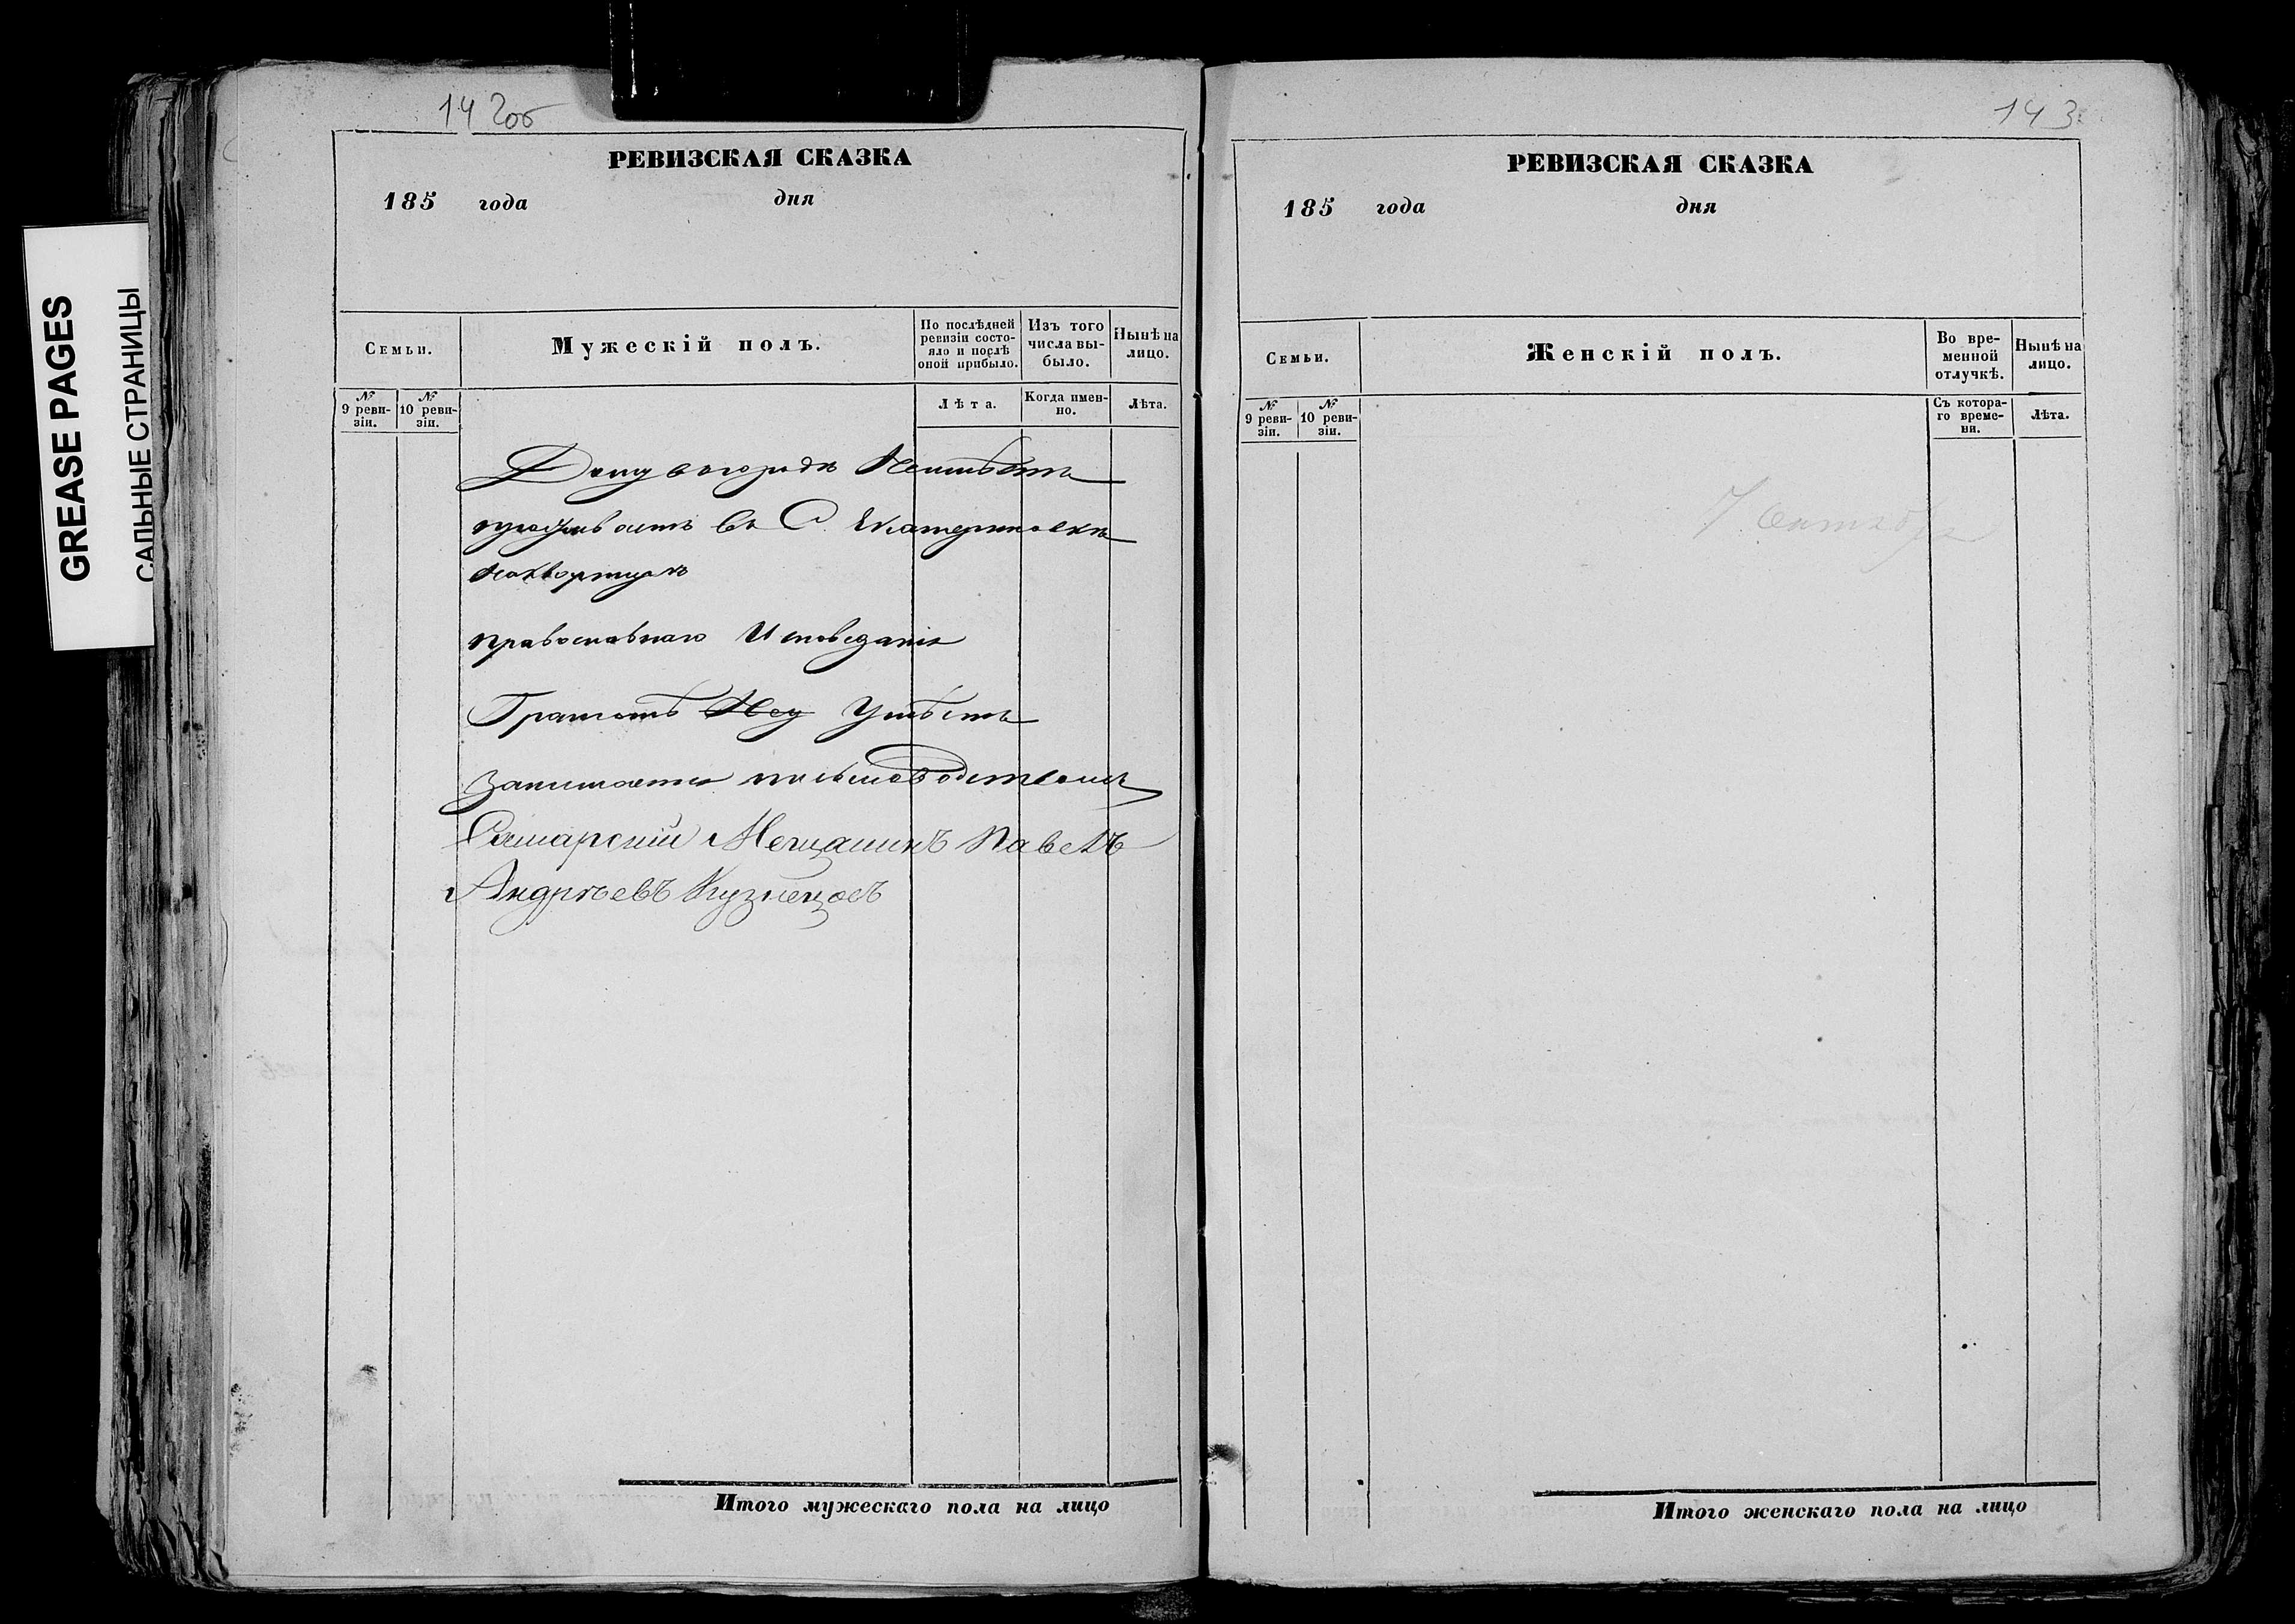 GREASE PAGES
САЛЬНЫЕ СТРАНИЦЫ
142об
РЕВИЗСКАЯ СКАЗКА
185 года дня
Семьи.
Мужескій полъ.
По послѣдней ревизіи состо-
яло и послѣ оной прибыло.
Изъ того числа вы-
было.
Нынѣ на лицо.
№ 9 реви-
зіи.
№ 10 реви-
зіи.
Лѣта.
Когда имен-
но.
Лѣта.
Дому въ городе Неимѣетъ
проживаетъ въ С. Екатериновке
наквортирѣ
православнаго Исповедания
Грамотѣ Не Умѣетъ
Занимается письмоводствомъ
Самарский Мещанинъ Павелъ
Андреевъ Кузнецовъ
Итого мужескаго пола на лицо
143
РЕВИЗСКАЯ СКАЗКА
185 года дня
Семьи.
Женскій полъ.
Во вре-
менной
отлучкѣ.
Нынѣ на лицо.
№ 9 реви-
зіи.
№ 10 реви-
зіи.
Съ котора-
го време-
ни.
Лѣта.
7 Сентябр
Итого женскаго пола на лицо